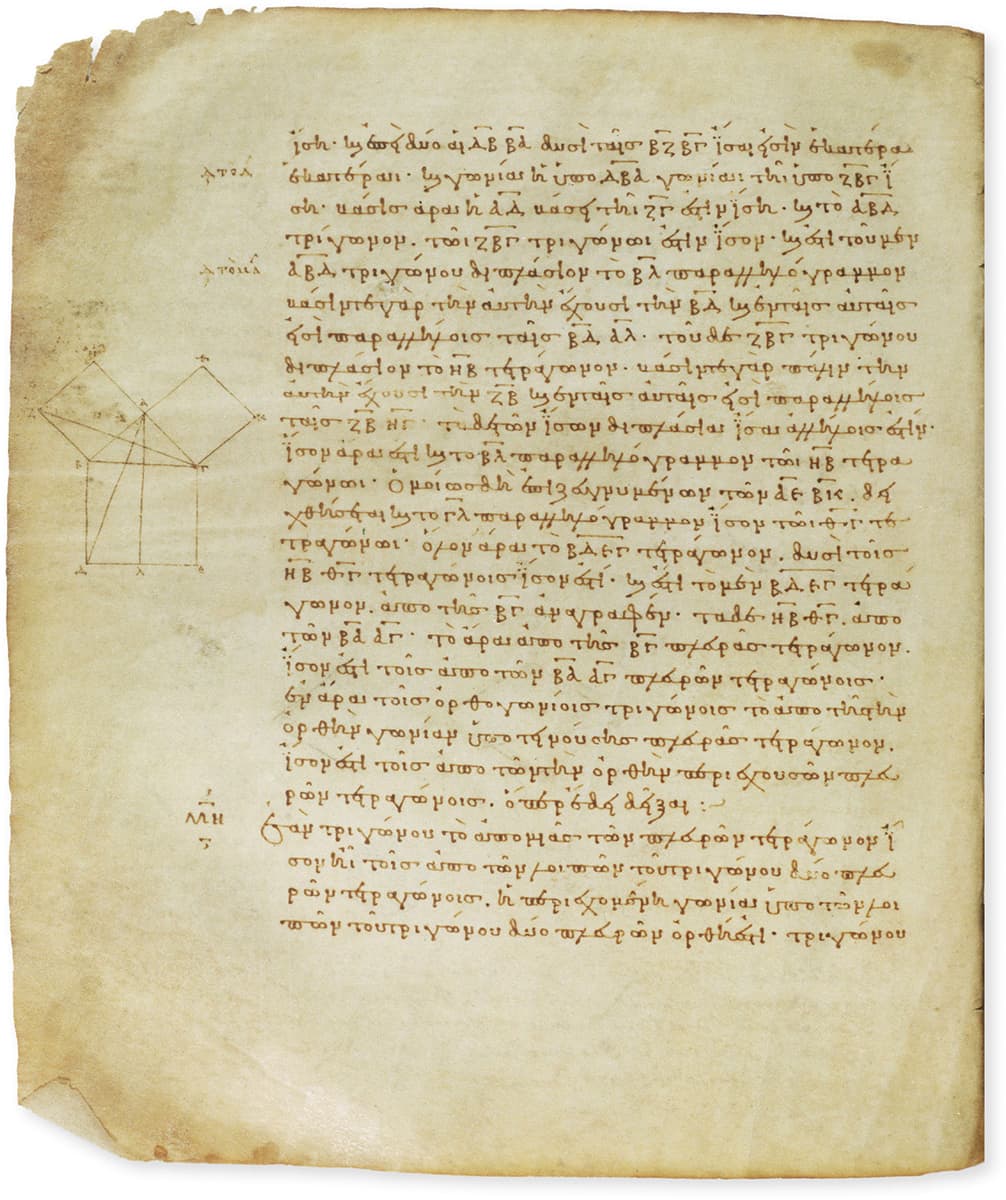 ἴση· καὶ ἐπεὶ δύο αἱ ΔΒ ΒΑ δυσὶ ταῖς ΒΖ ΒΓ ἴσαι εἰσὶν ἑκατέρα
ἑκατέραι· καὶ γωνία ἡ ὑπὸ ΔΒΑ γωνίαι τῆι ὑπὸ ΖΒΓ ἴ
ση· βάσις ἄρα ἡ ΑΔ βάσει τῆι ΖΓ ἐστὶν ἴση· καὶ τὸ ΑΒΔ
τρίγωνον. τῶι ΖΒΓ τριγώνωι ἐστὶν ἴσον· καὶ ἐστὶ τοῦ μὲν
ΑΒΔ τριγώνου διπλάσιον τὸ ΒΛ παραλληλόγραμμον
βάσιν τε γὰρ τὴν αὐτὴν ἔχουσι τὴν ΒΔ καὶ ἐν ταῖς αὐταῖς
εἰσὶ παραλλήλοις ταῖς ΒΔ ΑΛ· τοῦ δὲ ΖΒΓ τριγώνου
διπλάσιον τὸ ΗΒ τετράγωνον· βάσιν τε γὰρ πάλιν τὴν
αὐτὴν ἔχουσι τὴν ΖΒ καὶ ἐν ταῖς αὐταῖς εἰσὶ παραλλήλοις
ταῖς ΖΒ ΗΓ· τὰ δὲ τῶν ἴσων διπλάσια ἴσα ἀλλήλοις ἐστίν·
ἴσον ἄρα ἐστὶ καὶ τὸ ΒΛ παραλληλόγραμμον τῶι ΗΒ τετρα
γώνωι· Ὁμοίως δὴ ἐπιζευγνυμένων τῶν ΑΕ ΒΚ. δει
χθήσεται καὶ τὸ ΓΛ παραλληλόγραμμον ἴσον τῶι ΘΓ τε
τραγώνωι· ὅλον ἄρα τὸ ΒΔΕΓ τετράγωνον. δυσὶ τοῖς
ΗΒ ΘΓ τετραγώνοις ἴσον ἐστί· καὶ ἐστὶ τὸ μὲν ΒΔΕΓ τετρά
γωνον. ἀπὸ τῆς ΒΓ ἀναγραφέν· τὰ δὲ ΗΒ ΘΓ. ἀπὸ
τῶν ΒΑ ΑΓ· τὸ ἄρα ἀπὸ τῆς ΒΓ πλευρᾶς τετράγωνον.
ἴσον ἐστὶ τοῖς ἀπὸ τῶν ΒΑ ΑΓ πλευρῶν τετραγώνοις·
ἐν ἄρα τοῖς ὀρθογωνίοις τριγώνοις τὸ ἀπὸ τῆς τὴν
ὀρθὴν γωνίαν ὑποτεινούσης πλευρᾶς τετράγωνον.
ἴσον ἐστὶ τοῖς ἀπὸ τῶν τὴν ὀρθὴν περιεχουσῶν πλευ
ρῶν τετραγώνοις. ὅπερ ἔδει δεῖξαι :~
ΜΗ
Ἐὰν τριγώνου τὸ ἀπὸ μιᾶς τῶν πλευρῶν τετράγωνον ἴ
σον ἦι τοῖς ἀπὸ τῶν λοιπῶν τοῦ τριγώνου δύο πλευ
ρῶν τετραγώνοις. ἡ περιεχομένη γωνία ὑπὸ τῶν λοι
πῶν τοῦ τριγώνου δύο πλευρῶν ὀρθή ἐστι· τριγώνου